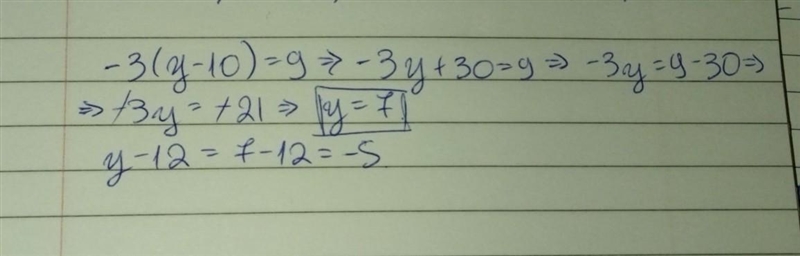 -3(y-10)=9 ⇒ -3y+30=9 ⇒ -3y=9-30 ⇒
⇒ +3y = +21 ⇒ |y=7|
y-12 = 7-12 = -5